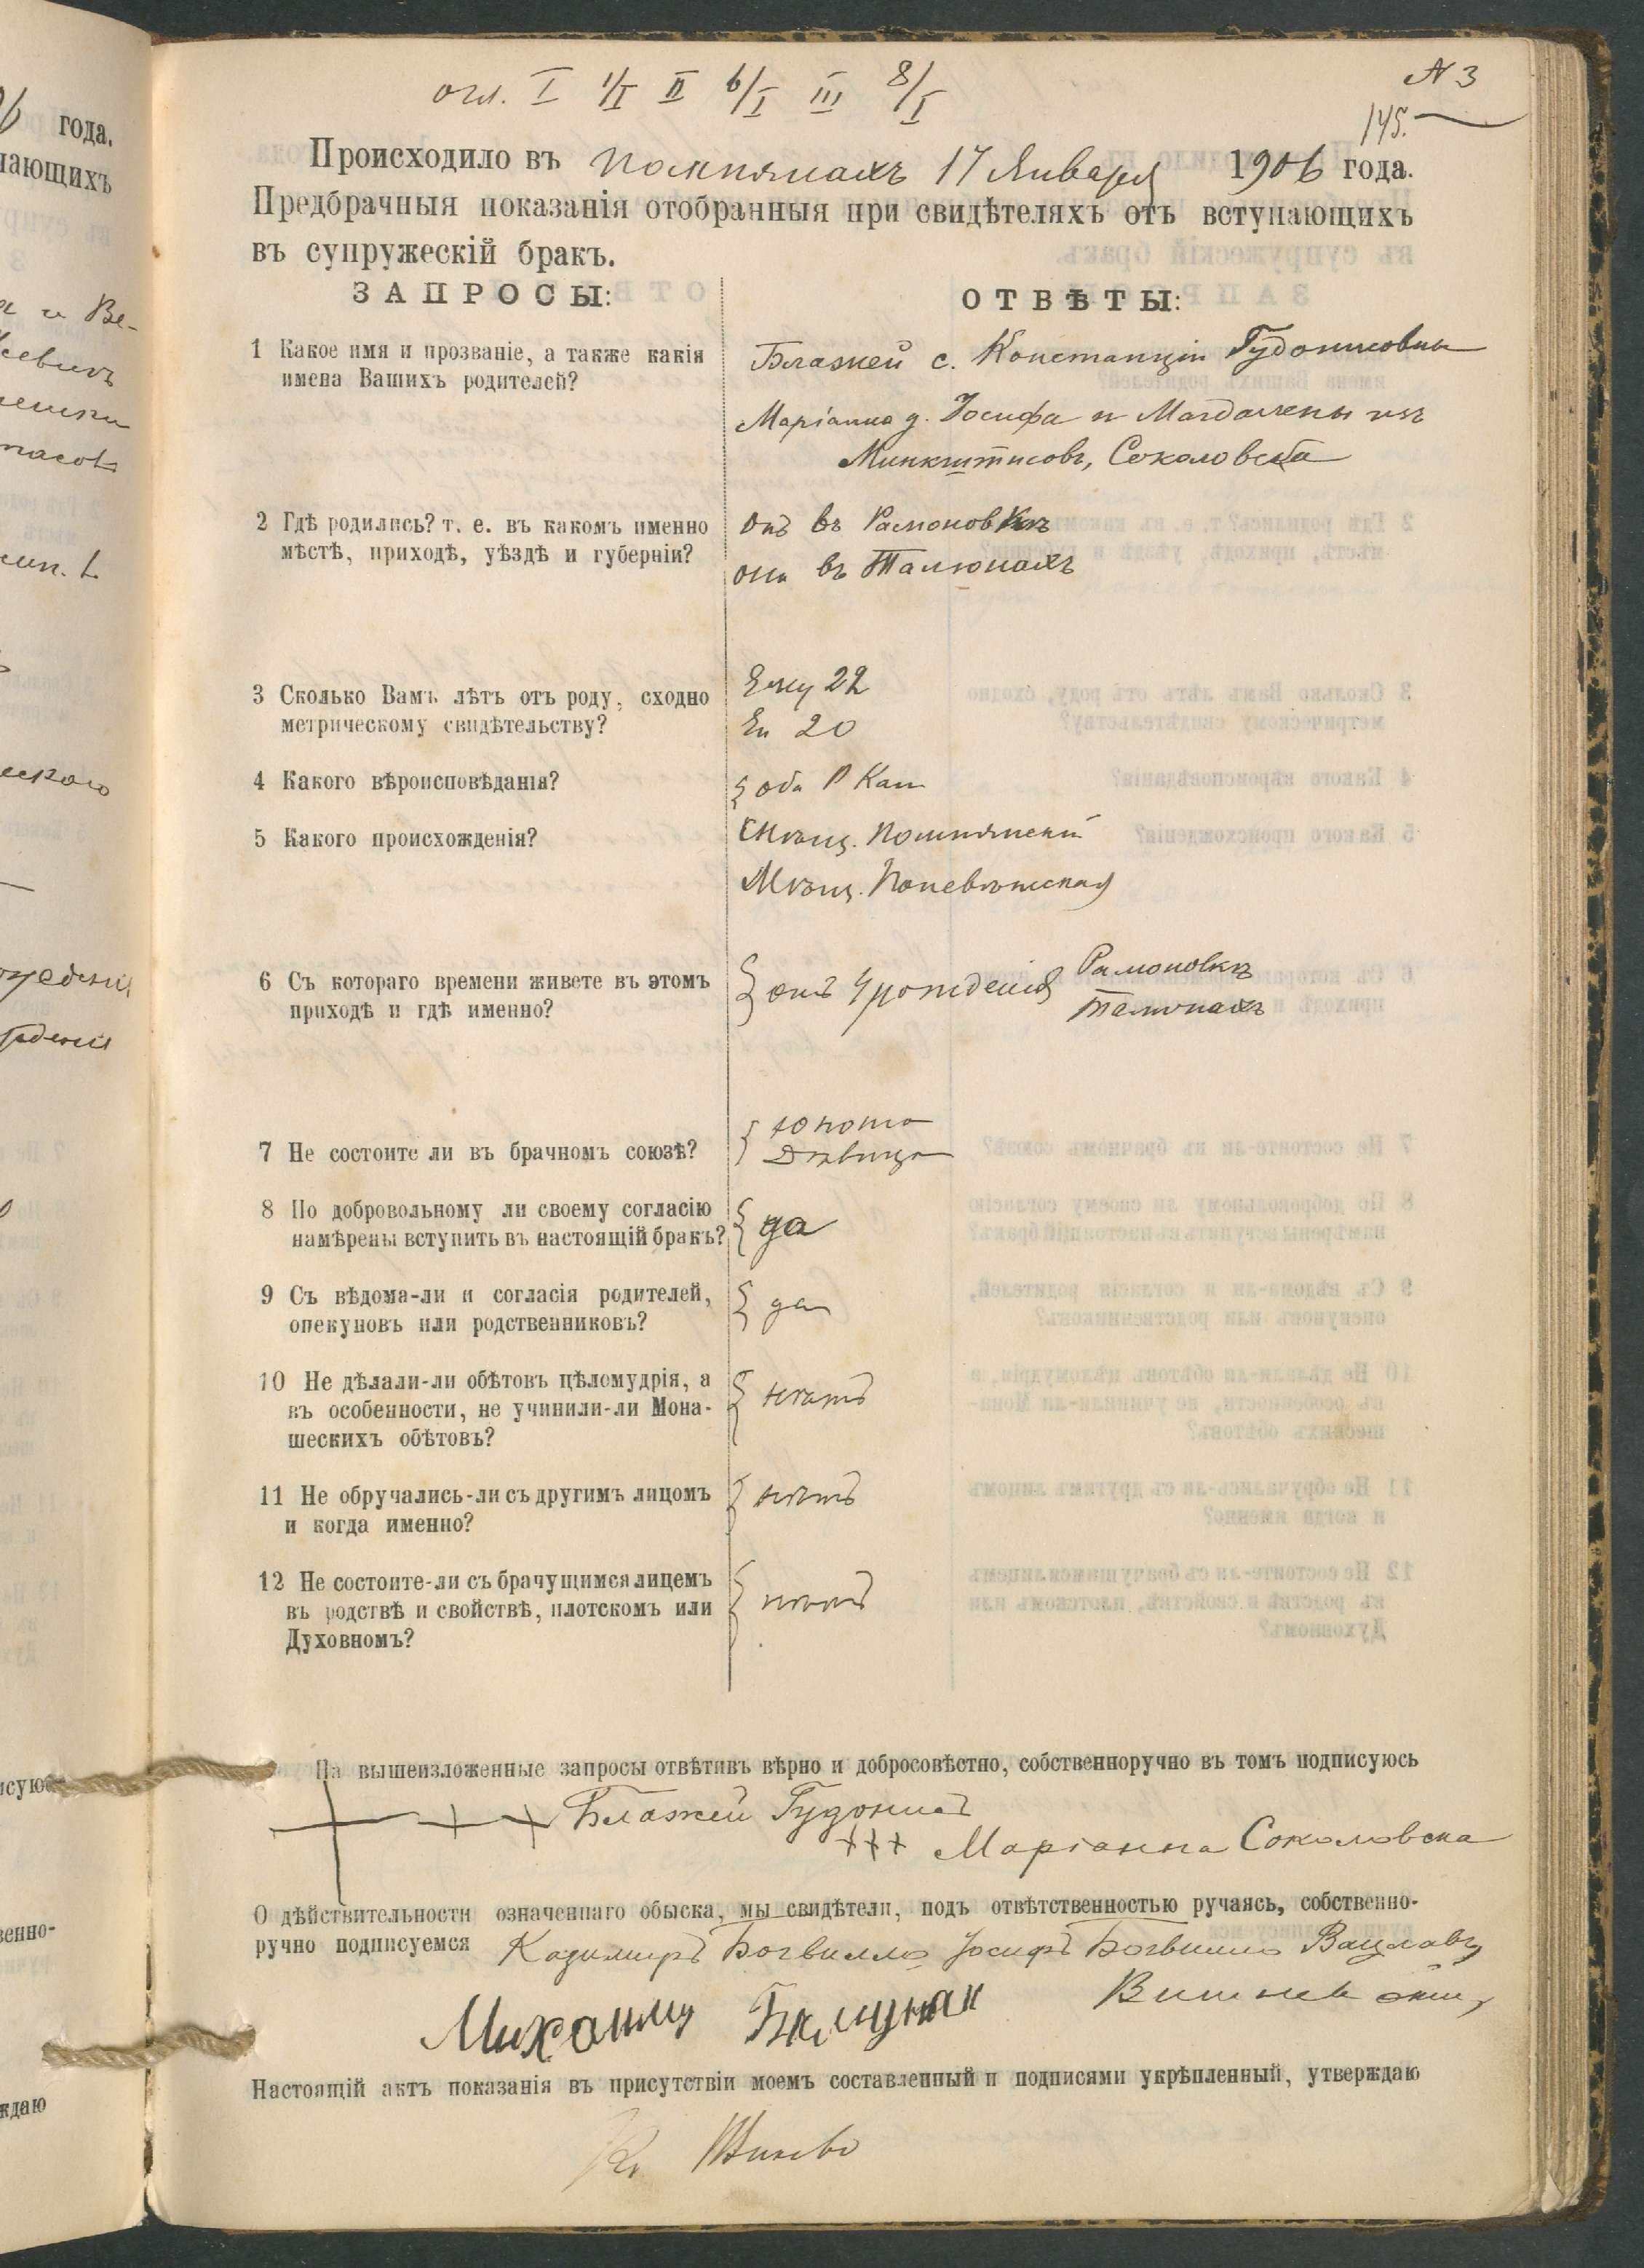 огл. I 1/I II 6/I III 8/I
N 3
145.
Происходило въ Помпянахъ 17 Января 1906 года.
Предбрачныя показанія отобранныя при свидѣтеляхъ отъ вступающихъ
въ супружескій бракъ.
ЗАПРОСЫ:
ОТВѢТЫ:
1 Какое имя и прозваніе, а также какія
имена Вашихъ родителей?
Блажей с. Констанціи Гудонисовны
Маріанна д. Іосифа и Магдалены изъ
Минкштисовъ, Соколовска
2 Гдѣ родились? т. е. въ какомъ именно
мѣстѣ, приходѣ, уѣздѣ и губерніи?
онъ въ Рамоновкѣ
она въ Талюнахъ
3 Сколько Вамъ лѣтъ отъ роду, сходно
метрическому свидѣтельству?
Ему 22
Ей 20
4 Какого вѣроисповѣданія?
оба Р Кат
5 Какого происхожденія?
Мѣщ. Помпянскій
Мѣщ. Поневѣжская
6 Съ котораго времени живете въ этомъ
приходѣ и гдѣ именно?
отъ урожденія Рамоновкѣ
Талюнахъ
7 Не состоите ли въ брачномъ союзѣ?
юноша
Дѣвица
8 По добровольному ли своему согласію
намѣрены вступить въ настоящій бракъ?
да
9 Съ вѣдома-ли и согласія родителей,
опекуновъ или родственниковъ?
да
10 Не дѣлали-ли обѣтовъ цѣломудрія, а
въ особенности, не учинили-ли Мона-
шескихъ обѣтовъ?
нѣтъ
11 Не обручались-ли съ другимъ лицомъ
и когда именно?
нѣтъ
12 Не состоите-ли съ брачущимся лицемъ
въ родствѣ и свойствѣ, плотскомъ или
Духовномъ?
нѣтъ
На вышеизложенные запросы отвѣтивъ вѣрно и добросовѣстно, собственноручно въ томъ подписуюсь
+ + + Блажей Гудонисъ
+++ Маріанна Соколовска
О дѣйствительности означеннаго обыска, мы свидѣтели, подъ отвѣтственностью ручаясь, собственно-
ручно подписуемся Казимиръ Богвилло Іосифъ Богвилло Вацлавъ
Вишневскій
Настоящій актъ показанія въ присутствіи моемъ составленный и подписями укрѣпленный, утверждаю